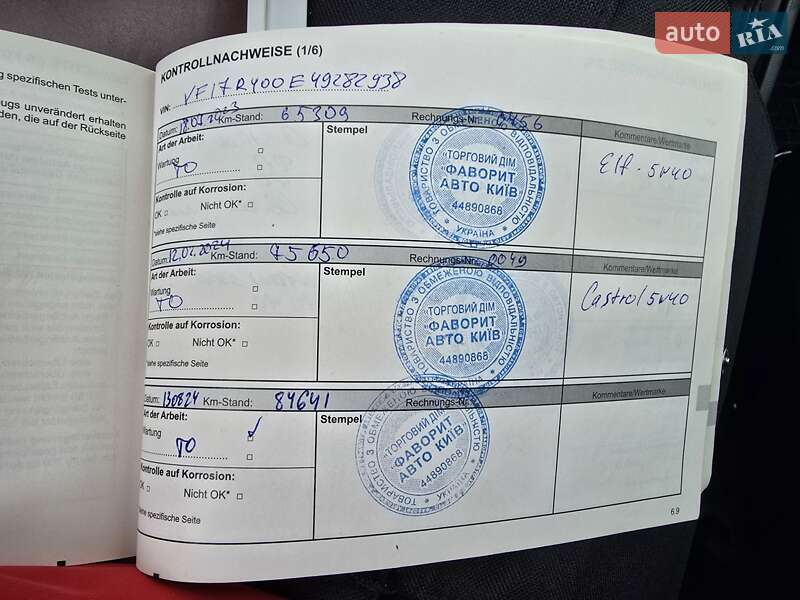 auto RIA
g spezifischen Tests unter-
eugs unverändert erhalten
den, die auf der Rückseite
KONTROLLNACHWEISE (1/6)
VIN: VF17RY00E49282938
Datum: Km-Stand: 65309 Rechnungs-Nr. 0456 Kommentare/Wertmarke
Art der Arbeit: Stempel
Wartung
ТО
Elf - 5w40
Kontrolle auf Korrosion:
OK Nicht OK*
*siehe spezifische Seite
ТОВАРИСТВО З ОБМЕЖЕНОЮ ВІДПОВІДАЛЬНІСТЮ
"ТОРГОВИЙ ДІМ
"ФАВОРИТ
АВТО КИЇВ"
44890868
* УКРАЇНА *
Datum: 12.02.2024 Km-Stand: 75650 Rechnungs-Nr. 0049 Kommentare/Wertmarke
Art der Arbeit: Stempel
Wartung
ТО
Castrol 5w40
Kontrolle auf Korrosion:
OK Nicht OK*
*siehe spezifische Seite
ТОВАРИСТВО З ОБМЕЖЕНОЮ ВІДПОВІДАЛЬНІСТЮ
"ТОРГОВИЙ ДІМ
"ФАВОРИТ
АВТО КИЇВ"
44890868
* УКРАЇНА *
Datum: 130824 Km-Stand: 84641 Rechnungs-Nr. Kommentare/Wertmarke
Art der Arbeit: Stempel
Wartung
ТО
Kontrolle auf Korrosion:
OK Nicht OK*
*siehe spezifische Seite
ТОВАРИСТВО З ОБМЕЖЕНОЮ ВІДПОВІДАЛЬНІСТЮ
"ТОРГОВИЙ ДІМ
"ФАВОРИТ
АВТО КИЇВ"
44890868
* УКРАЇНА *
6.9